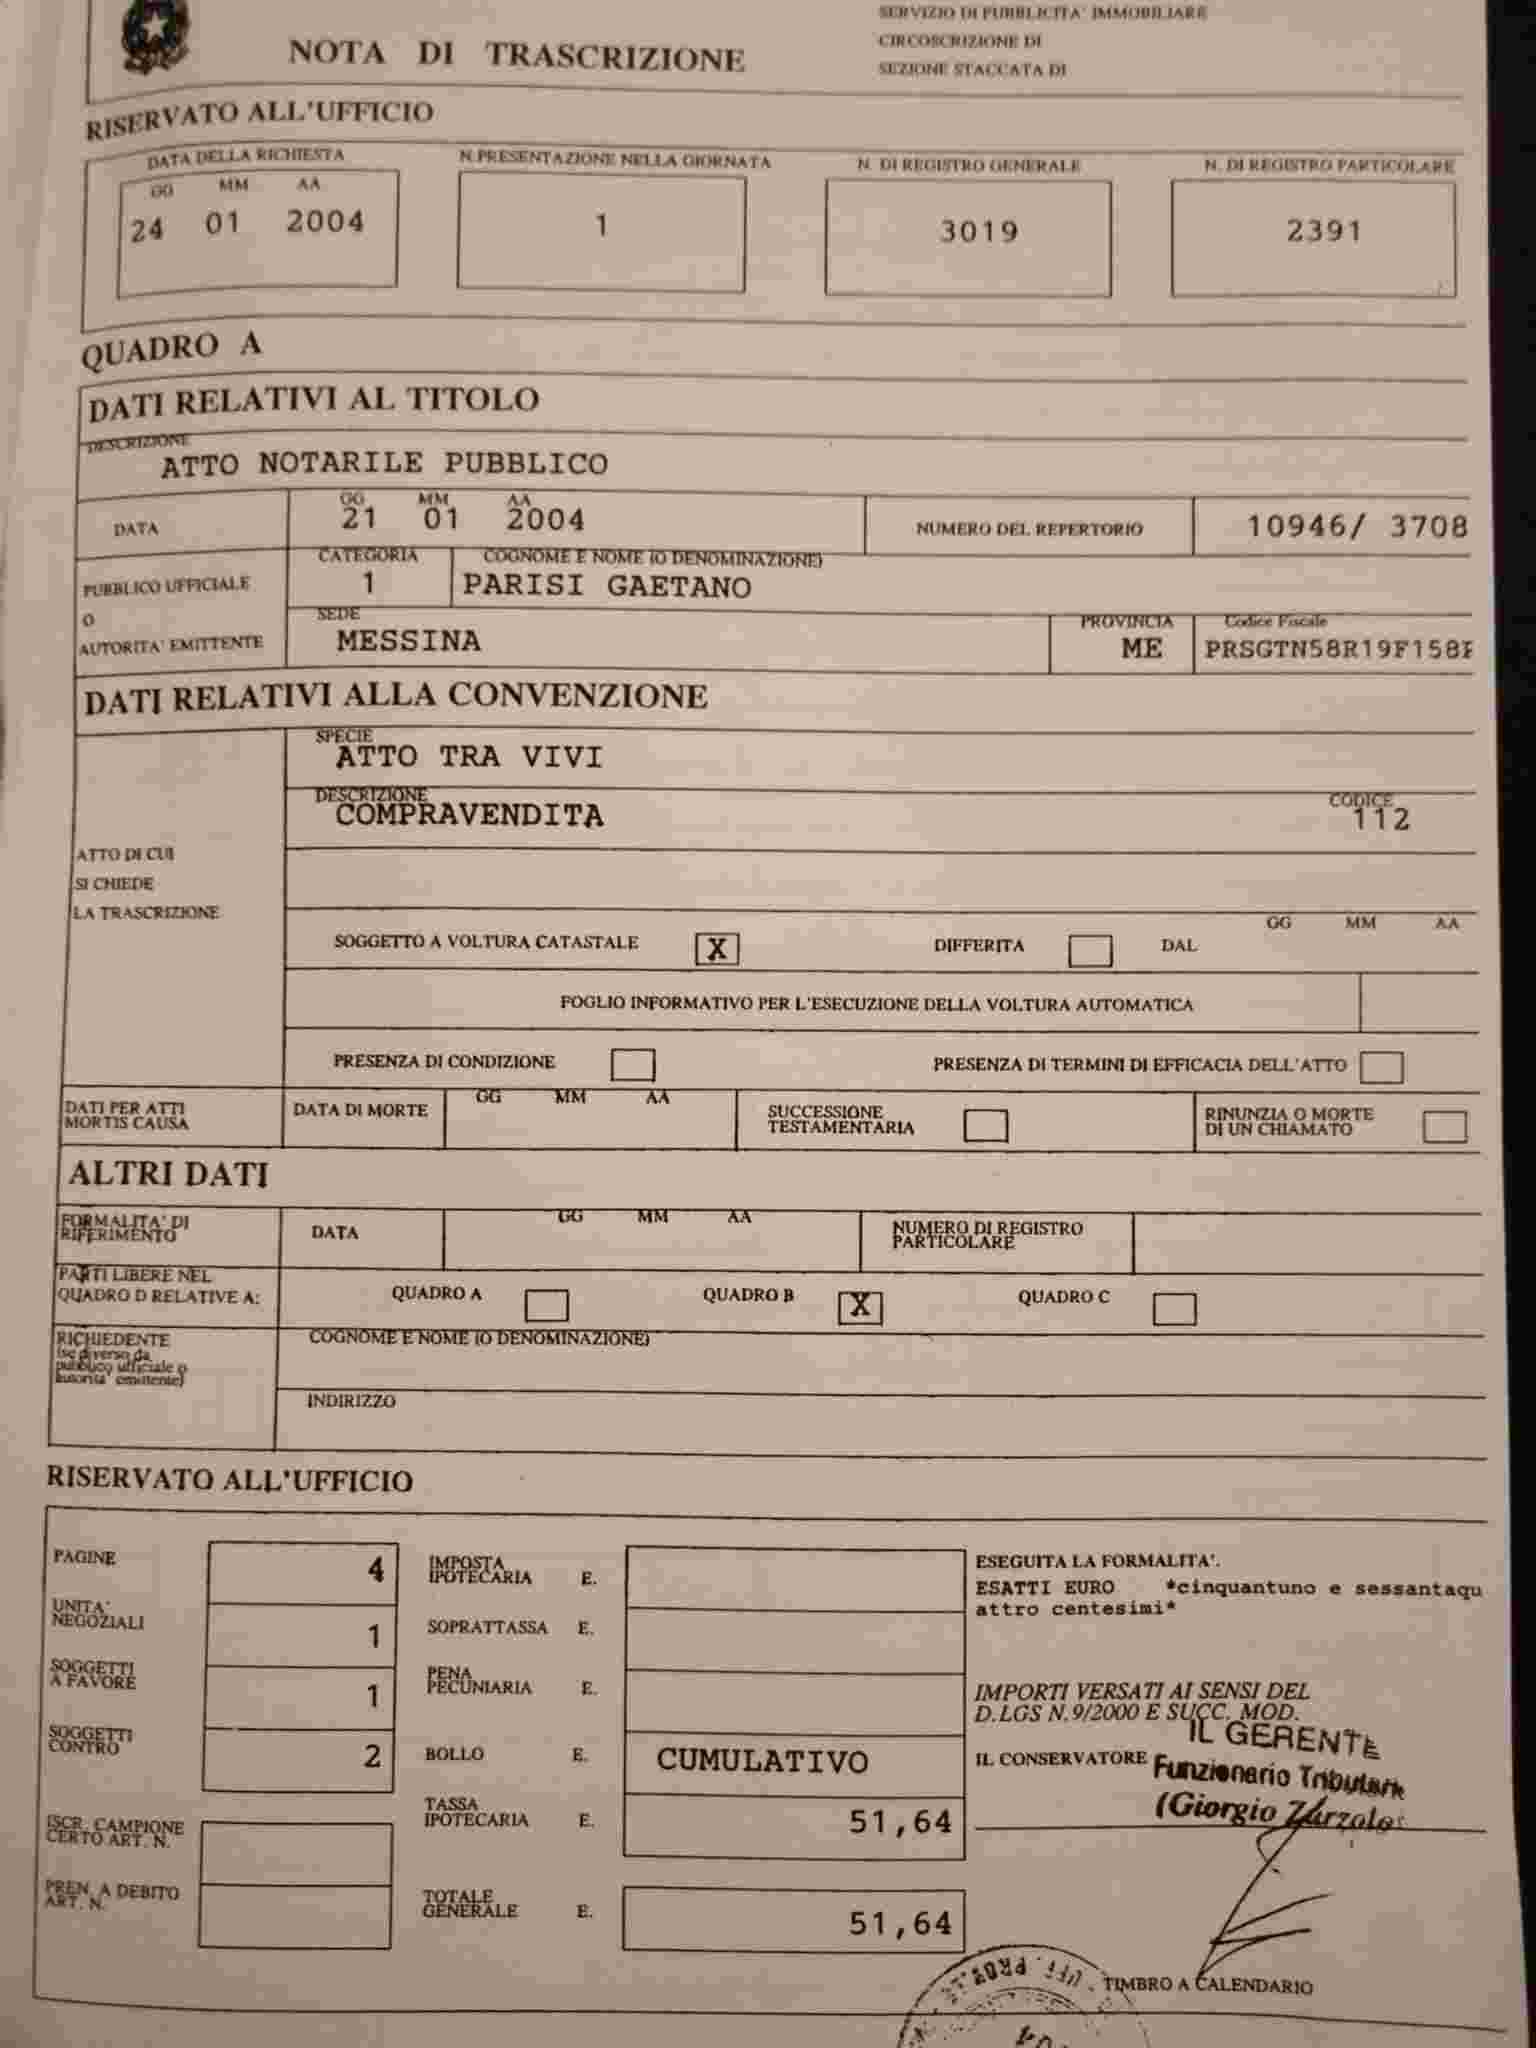 SERVIZIO DI PUBBLICITA' IMMOBILIARE
NOTA DI TRASCRIZIONE
CIRCOSCRIZIONE DI
SEZIONE STACCATA DI
RISERVATO ALL'UFFICIO
DATA DELLA RICHIESTA N.PRESENTAZIONE NELLA GIORNATA N. DI REGISTRO GENERALE N. DI REGISTRO PARTICOLARE
GG MM AA
24 01 2004 1 3019 2391
QUADRO A
DATI RELATIVI AL TITOLO
DESCRIZIONE
ATTO NOTARILE PUBBLICO
GG MM AA
DATA 21 01 2004 NUMERO DEL REPERTORIO 10946/ 3708
CATEGORIA COGNOME E NOME (O DENOMINAZIONE)
PUBBLICO UFFICIALE 1 PARISI GAETANO
O SEDE PROVINCIA Codice Fiscale
AUTORITA' EMITTENTE MESSINA ME PRSGTN58R19F158
DATI RELATIVI ALLA CONVENZIONE
SPECIE
ATTO TRA VIVI
DESCRIZIONE CODICE
COMPRAVENDITA 112
ATTO DI CUI
SI CHIEDE
LA TRASCRIZIONE
GG MM AA
SOGGETTO A VOLTURA CATASTALE X DIFFERITA DAL
FOGLIO INFORMATIVO PER L'ESECUZIONE DELLA VOLTURA AUTOMATICA
PRESENZA DI CONDIZIONE PRESENZA DI TERMINI DI EFFICACIA DELL'ATTO
GG MM AA
DATI PER ATTI DATA DI MORTE SUCCESSIONE RINUNZIA O MORTE
MORTIS CAUSA TESTAMENTARIA DI UN CHIAMATO
ALTRI DATI
GG MM AA
FORMALITA' DI DATA NUMERO DI REGISTRO
RIFERIMENTO PARTICOLARE
PARTI LIBERE NEL
QUADRO D RELATIVE A: QUADRO A QUADRO B X QUADRO C
RICHIEDENTE COGNOME E NOME (O DENOMINAZIONE)
(se diverso da
pubblico ufficiale o
autorita' emittente)
INDIRIZZO
RISERVATO ALL'UFFICIO
PAGINE 4 IMPOSTA
IPOTECARIA E.
ESEGUITA LA FORMALITA'.
ESATTI EURO *cinquantuno e sessantaqu
attro centesimi*
UNITA'
NEGOZIALI 1 SOPRATTASSA E.
SOGGETTI
A FAVORE 1 PENA
PECUNIARIA E.
IMPORTI VERSATI AI SENSI DEL
D.LGS N.9/2000 E SUCC. MOD.
SOGGETTI
CONTRO 2 BOLLO E. CUMULATIVO
IL GERENTE
IL CONSERVATORE Funzionario Tributario
(Giorgio
ISCR. CAMPIONE
CERTO ART. N. TASSA
IPOTECARIA E. 51,64
PREN. A DEBITO
ART. N. TOTALE
GENERALE E. 51,64
TIMBRO A CALENDARIO
UFF. PROV.LE